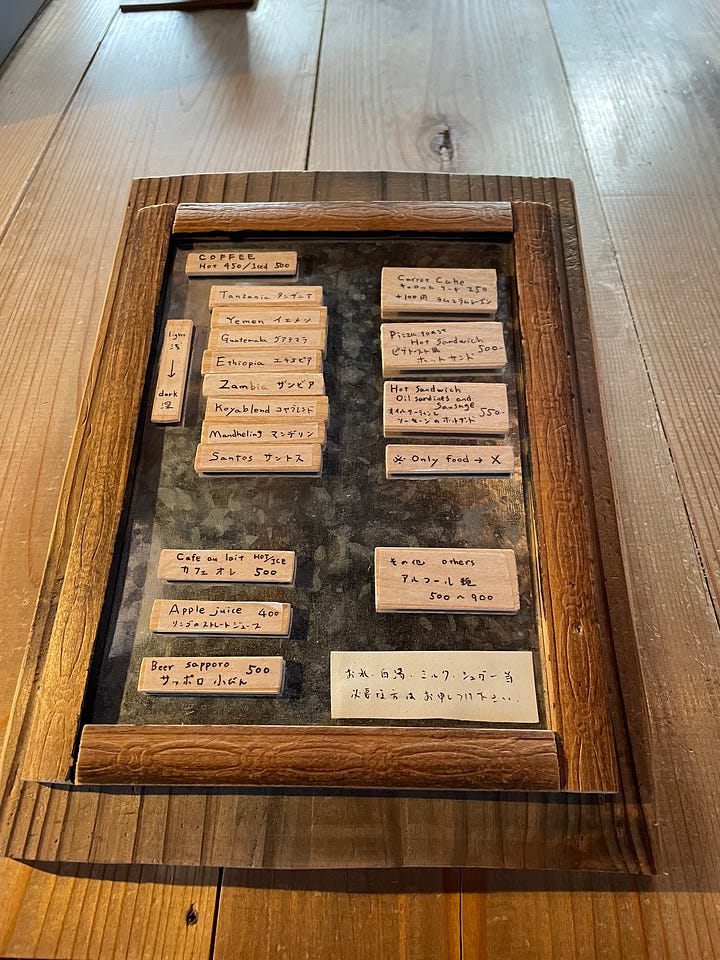 COFFEE
Hot 450/Iced 500
light
浅
↓
dark
深
Tanzania タンザニア
Yemen イエメン
Guatemala グアテマラ
Ethiopia エチオピア
Zambia ザンビア
Koyablend コヤブレンド
Mandheling マンデリン
Santos サントス
Cafe au lait HOT/ICE
カフェオレ 500
Apple juice 400
リンゴのストレートジュース
Beer sapporo 500
サッポロ 小びん
Carrot Cake
キャロットケーキ 250
+100円
Pizza toast
Hot Sandwich
ピザトースト風 500-
ホットサンド
Hot Sandwich
Oil sardines and
Sausage
オイルサーディンと 550-
ソーセージのホットサンド
※ Only food → X
その他 others
アルコール類
500〜900
お水・白湯・ミルク・シュガー等
必要な方はお申しつけ下さい.